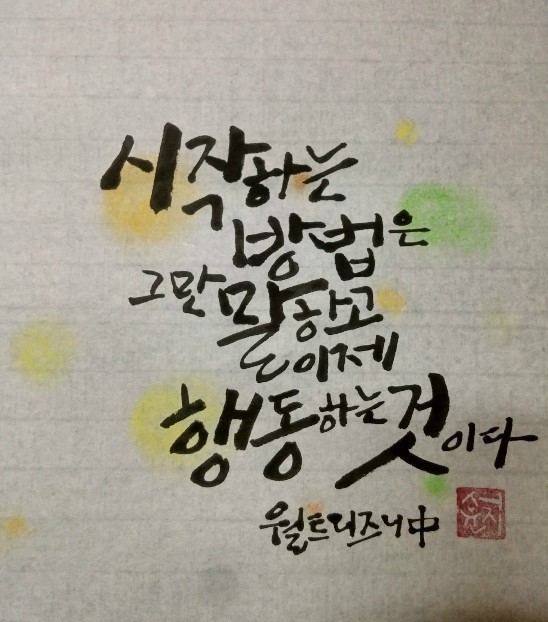 시작하는
방법은
그만 말하고
이제
행동하는 것이다
월트디즈니 中